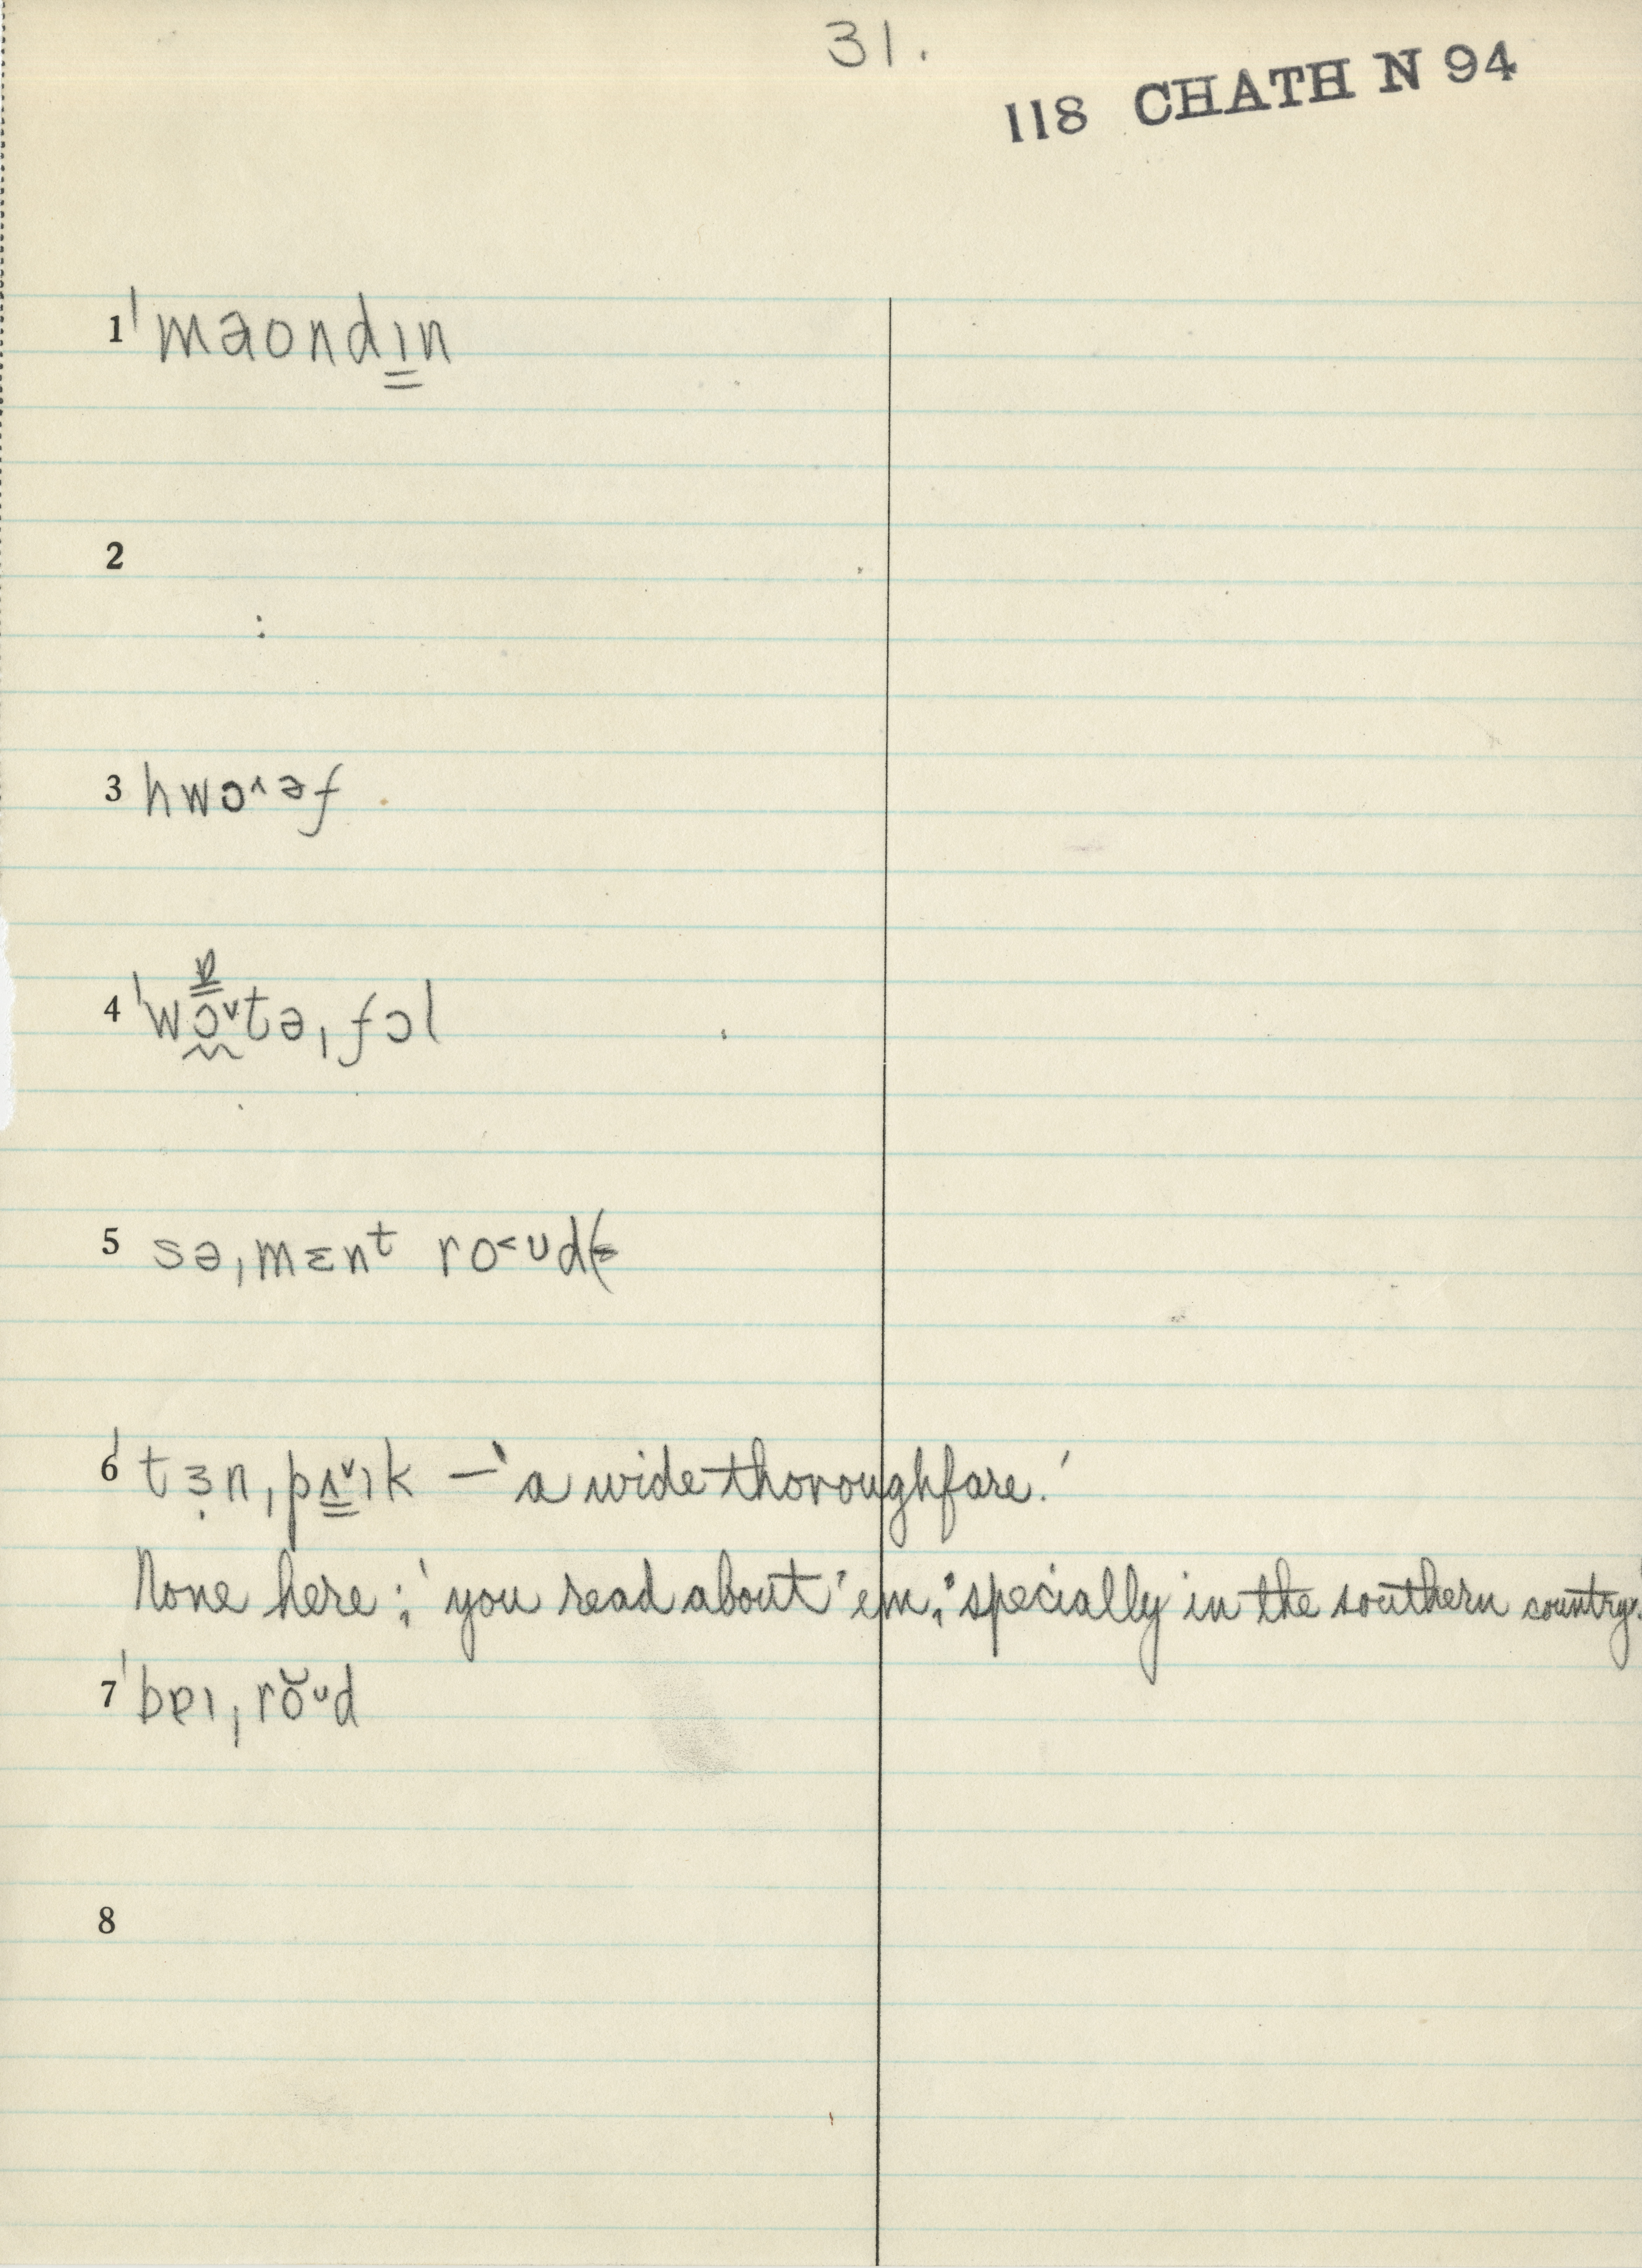 31.
118 CHATH N 94
1 ˈmaondɪ̳n
2
3 hwɔ˄əf
4 ˈwɔ˅təˌfɔl
ɒ̳
5 səˌmɛnᵗ ro˂ᴜd
6 ˈtɜ̣nˌpʌ̳˅ɪk — 'a wide thoroughfare.'
None here; 'you read about 'em, 'specially in the southern country.'
7 ˈbɐɪˌrŏᶷd
8